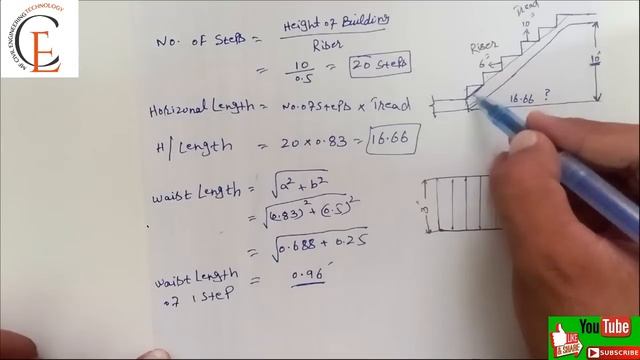 MF CIVIL ENGINEERING TECHNOLOGY
CE
No. of Steps = Height of Building
Riser
= 10
0.5 = 20 Steps
Horizonal Length = No.of Steps x Tread
H/Length = 20 x 0.83 = 16.66
waist Length = √a² + b²
= √(0.83)² + (0.5)²
= √0.688 + 0.25
waist Length
of 1 Step = 0.96'
Tread
10"
Riser
6"
10'
16.66 ?
3'
YouTube
LIKE
& SHARE
SUBSCRIBE